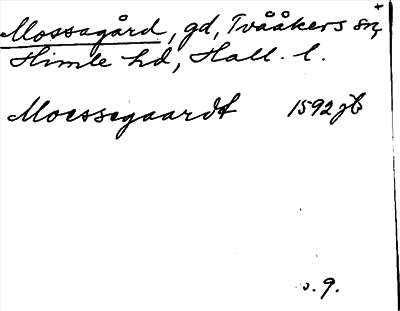 Mossagård, gd, Tvååkers sn,
Himle hd, Hall. l.
Moessegaardt 1592 jb
s. 9.